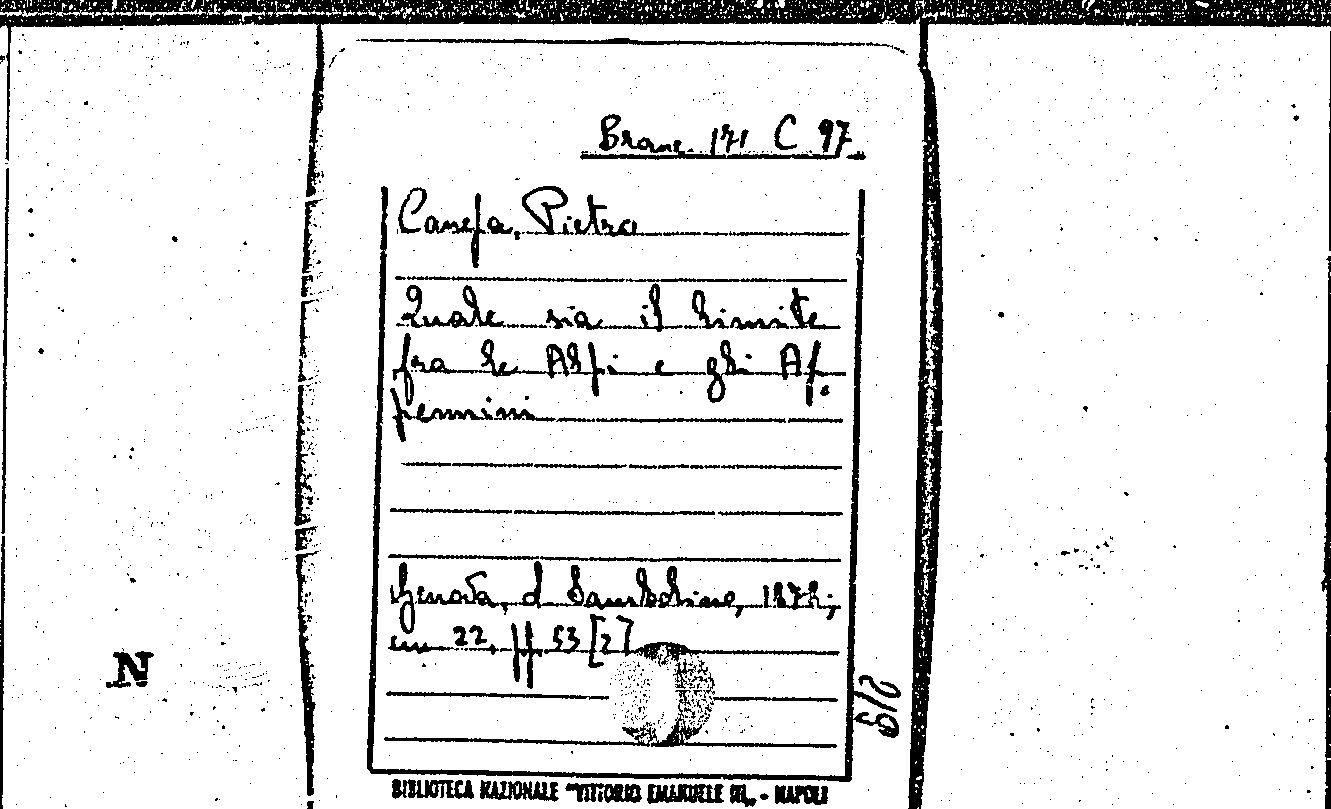 Branc. 171 C 97
Canepa, Pietro
Quale sia il limite
fra le Alpi e gli Ap.
pennini
Genova, d Sambolino, 1878;
cm 22, pp. 53 [2]
N
BIBLIOTECA NAZIONALE "VITTORIO EMANUELE III„ - NAPOLI